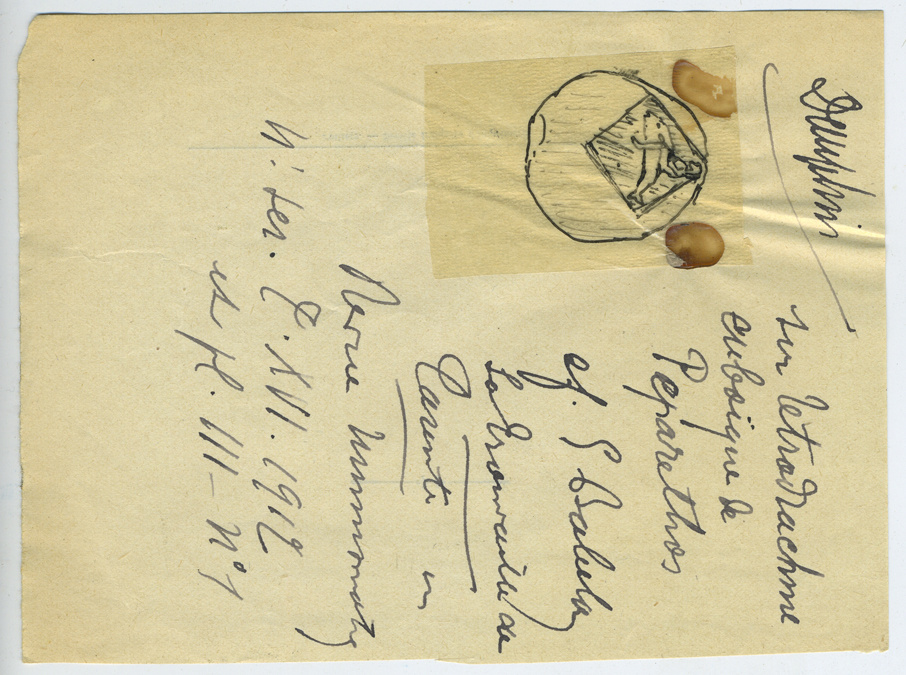 Dauphin
sur tétradrachme
euboïque de
Peparethos
cf. E Babelon
La trouvaille de
Tarente in
Revue Numismatiq
4e ser. T. XVI. 1912
et pl. III - n° 1